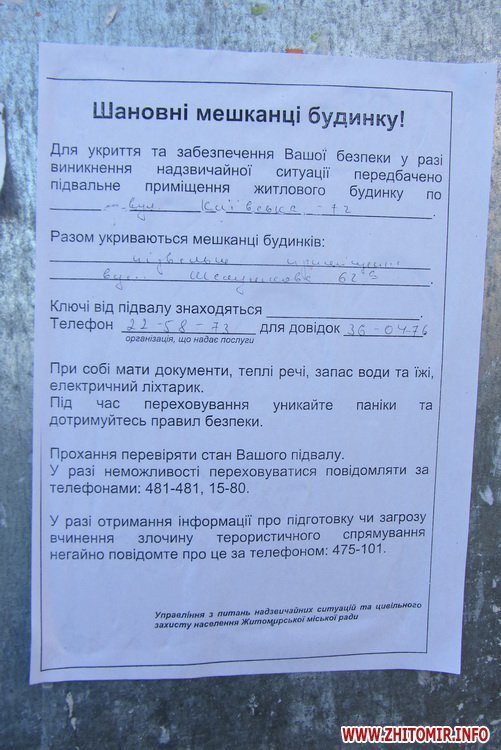 Шановні мешканці будинку!
Для укриття та забезпечення Вашої безпеки у разі
виникнення надзвичайної ситуації передбачено
підвальне приміщення житлового будинку по
вул. Київська - 72
Разом укриваються мешканці будинків:
підвальне приміщення
вул.
Ключі від підвалу знаходяться
Телефон 22-58-73 для довідок 36-04-76
організація, що надає послуги
При собі мати документи, теплі речі, запас води та їжі,
електричний ліхтарик.
Під час переховування уникайте паніки та
дотримуйтесь правил безпеки.
Прохання перевіряти стан Вашого підвалу.
У разі неможливості переховуватися повідомляти за
телефонами: 481-481, 15-80.
У разі отримання інформації про підготовку чи загрозу
вчинення злочину терористичного спрямування
негайно повідомте про це за телефоном: 475-101.
Управління з питань надзвичайних ситуацій та цивільного
захисту населення Житомирської міської ради
WWW.ZHITOMIR.INFO